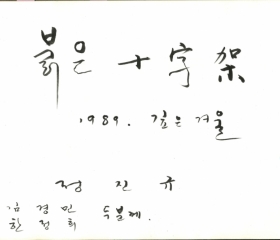 붉은 十字架
1989. 깊은 겨울
정진규
김경민
한정희 두분께.